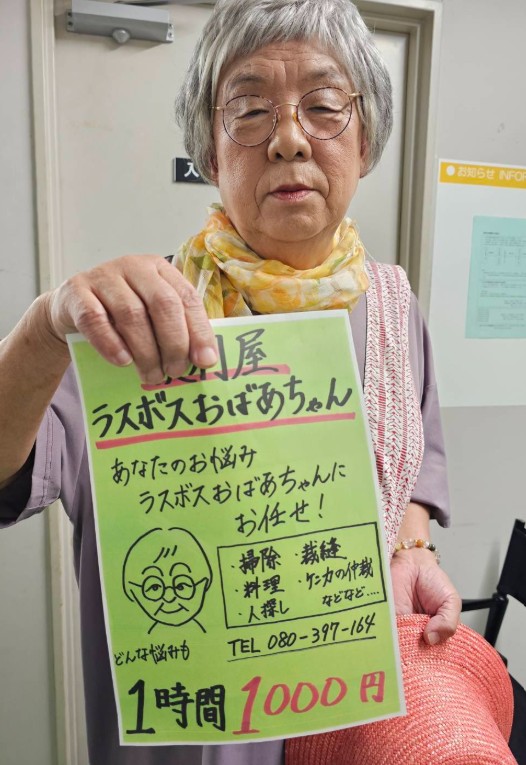 入
お知らせ INFOR
門屋
ラスボスおばあちゃん
あなたのお悩み
ラスボスおばあちゃんに
お任せ!
・掃除 ・裁縫
・料理 ・ケンカの仲裁
・人探し などなど....
どんな悩みも
TEL 080-397-164
1時間 1000円